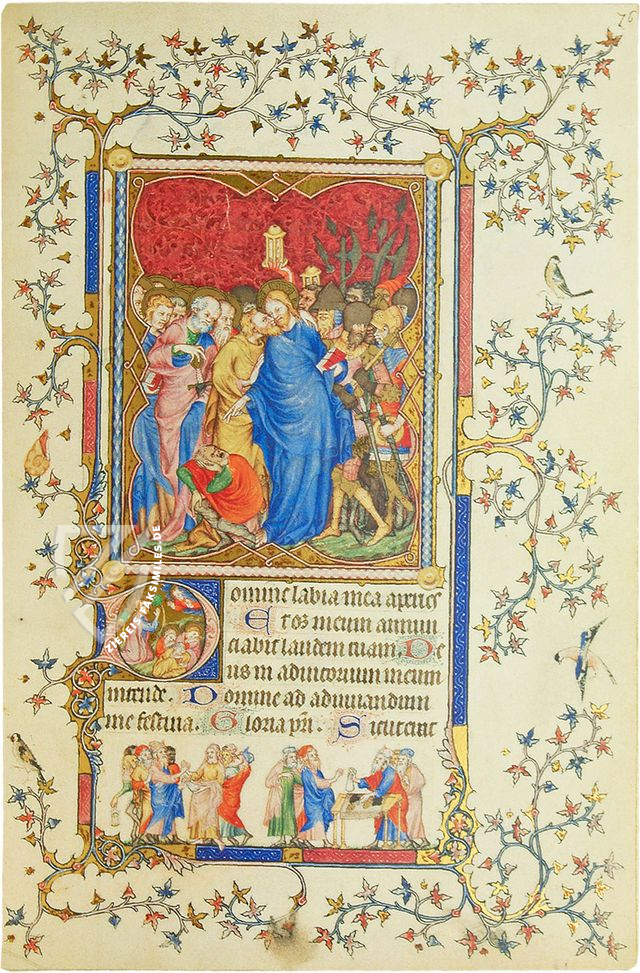 76
Domine labia mea aperies
Et os meum annun
ciabit laudem tuam De
us in adiutorium meum
intende Domine ad adiuuandum
me festina Gloria pri Sicut erat
ZIEREIS-FAKSIMILES.DE